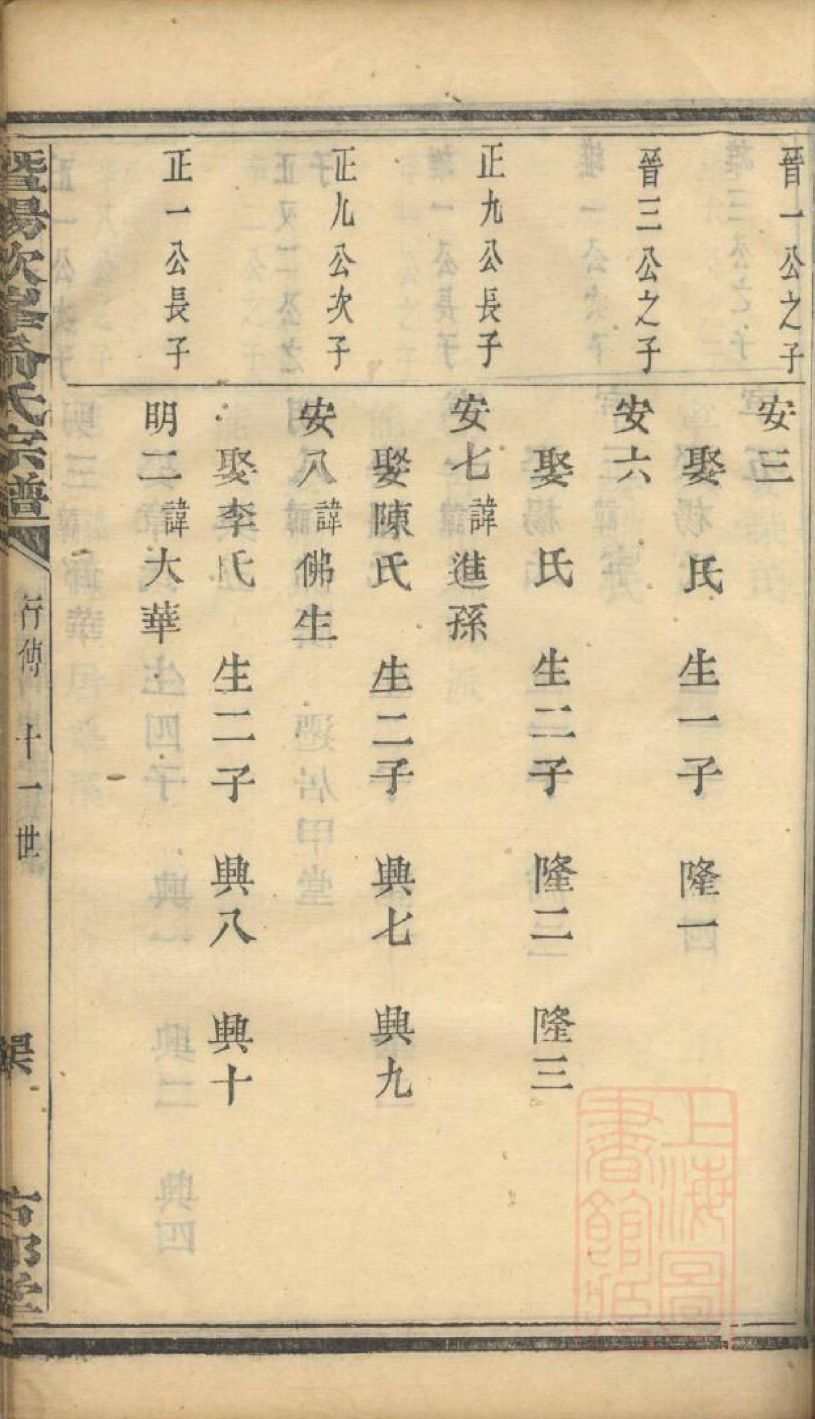 晉一公之子
安三
娶　氏　生一子　隆一
晉三公之子
安六
娶　氏　生二子　隆二　隆三
正九公長子
安七諱進孫
娶陳氏　生二子　興七　興九
正九公次子
安八諱佛生
娶李氏　生二子　興八　興十
正一公長子
明二諱大華
暨陽次峯 氏宗譜
行傳　十一世
上海圖
書館